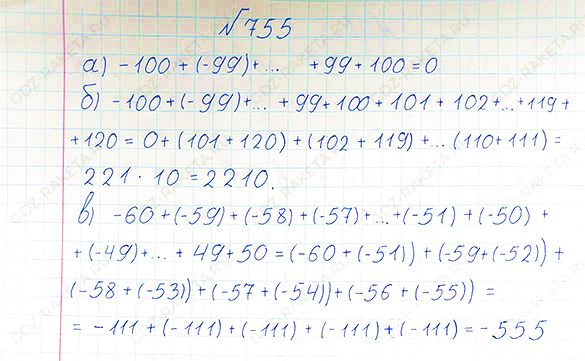 №755
а) -100 + (-99) + ... + 99 + 100 = 0
б) -100 + (-99) + ... + 99 + 100 + 101 + 102 + ... + 119 +
+ 120 = 0 + (101 + 120) + (102 + 119) + ... (110 + 111) =
221 · 10 = 2210.
в) -60 + (-59) + (-58) + (-57) + ... + (-51) + (-50) +
+ (-49) + ... + 49 + 50 = (-60 + (-51)) + (-59 + (-52)) +
(-58 + (-53)) + (-57 + (-54)) + (-56 + (-55)) =
= -111 + (-111) + (-111) + (-111) + (-111) = -555